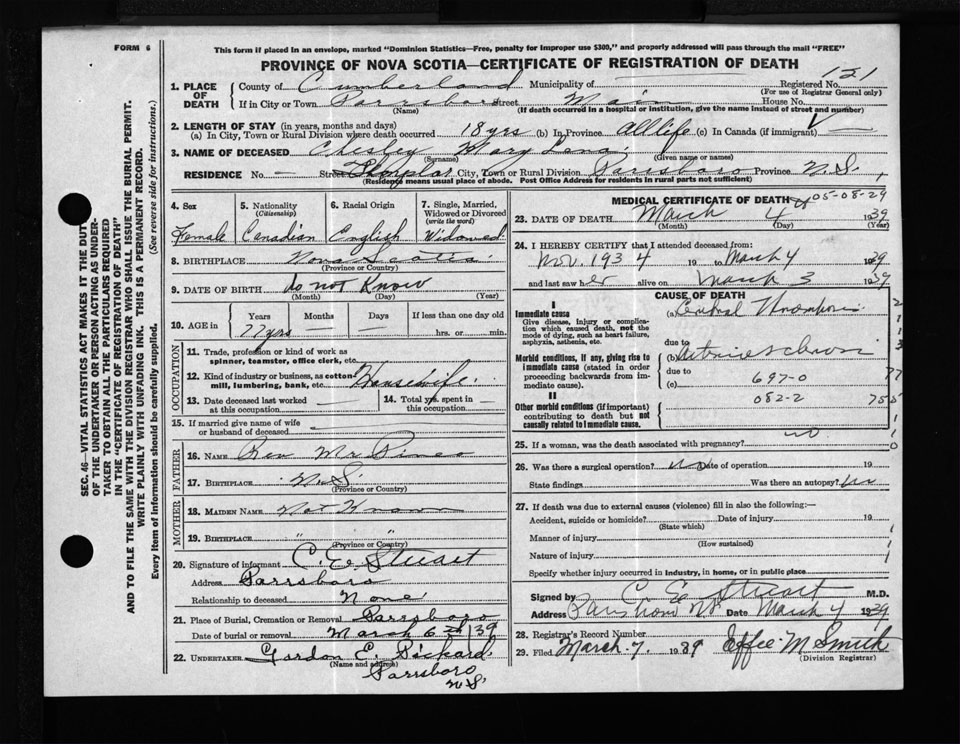 FORM 6
This form if placed in an envelope, marked "Dominion Statistics—Free, penalty for improper use $300," and properly addressed will pass through the mail "FREE"
PROVINCE OF NOVA SCOTIA—CERTIFICATE OF REGISTRATION OF DEATH
SEC. 46—VITAL STATISTICS ACT MAKES IT THE DUTY
OF THE UNDERTAKER OR PERSON ACTING AS UNDER-
TAKER TO OBTAIN ALL THE PARTICULARS REQUIRED
IN THE "CERTIFICATE OF REGISTRATION OF DEATH"
AND TO FILE THE SAME WITH THE DIVISION REGISTRAR WHO SHALL ISSUE THE BURIAL PERMIT.
WRITE PLAINLY WITH UNFADING INK. THIS IS A PERMANENT RECORD.
Every item of information should be carefully supplied. (See reverse side for instructions.)
1. PLACE OF DEATH
County of Cumberland Municipality of — Registered No. 121
(For use of Registrar General only)
If in City or Town Parrsboro Street Main House No.
(Name) (If death occurred in a hospital or institution, give the name instead of street and number)
2. LENGTH OF STAY (in years, months and days)
(a) In City, Town or Rural Division where death occurred 18 yrs (b) In Province All life (c) In Canada (if immigrant) —
3. NAME OF DECEASED Chesley Mary Lena
(Surname) (Given name or names)
RESIDENCE No. — Street City, Town or Rural Division Parrsboro Province N.S.
(Residence means usual place of abode. Post Office Address for residents in rural parts not sufficient)
4. Sex Female
5. Nationality (Citizenship) Canadian
6. Racial Origin English
7. Single, Married, Widowed or Divorced (write the word) Widowed
8. BIRTHPLACE Nova Scotia
(Province or Country)
9. DATE OF BIRTH do not Know
(Month) (Day) (Year)
10. AGE in Years Months Days If less than one day old
77 yrs — — hrs. or min.
OCCUPATION
11. Trade, profession or kind of work as spinner, teamster, office clerk, etc.
12. Kind of industry or business, as cotton-mill, lumbering, bank, etc. Housewife
13. Date deceased last worked at this occupation —
14. Total yrs. spent in this occupation —
15. If married give name of wife or husband of deceased —
FATHER
16. NAME Rev Mr Pineo
17. BIRTHPLACE N.S.
(Province or Country)
MOTHER
18. MAIDEN NAME Not Known
19. BIRTHPLACE " "
(Province or Country)
20. Signature of informant C. E. Stuart
Address Parrsboro
Relationship to deceased None
21. Place of Burial, Cremation or Removal Parrsboro
Date of burial or removal March 6 /39
22. UNDERTAKER Gordon E. Pickard
(Name and address) Parrsboro
N.S.
MEDICAL CERTIFICATE OF DEATH 05-08-29
23. DATE OF DEATH March 4 1939
(Month) (Day) (Year)
24. I HEREBY CERTIFY that I attended deceased from:
Nov. 1934 19 to March 4 1939
and last saw her alive on March 3 1939
CAUSE OF DEATH
I
Immediate cause
Give disease, injury or complication which caused death, not the mode of dying, such as heart failure, asphyxia, asthenia, etc.
(a) Cerebral Thrombosis
due to
Morbid conditions, if any, giving rise to immediate cause (stated in order proceeding backwards from immediate cause).
(b)
due to
(c) 697-0
II
Other morbid conditions (if important) contributing to death but not causally related to immediate cause.
082-2
25. If a woman, was the death associated with pregnancy? no
26. Was there a surgical operation? no Date of operation 19
State findings Was there an autopsy? no
27. If death was due to external causes (violence) fill in also the following:—
Accident, suicide or homicide? Date of injury 19
(State which)
Manner of injury
(How sustained)
Nature of injury
Specify whether injury occurred in industry, in home, or in public place
Signed by C E Stuart M.D.
Address Parrsboro NS Date March 4 1939
28. Registrar's Record Number
29. Filed March 7, 1939 Effie M Smith
(Division Registrar)